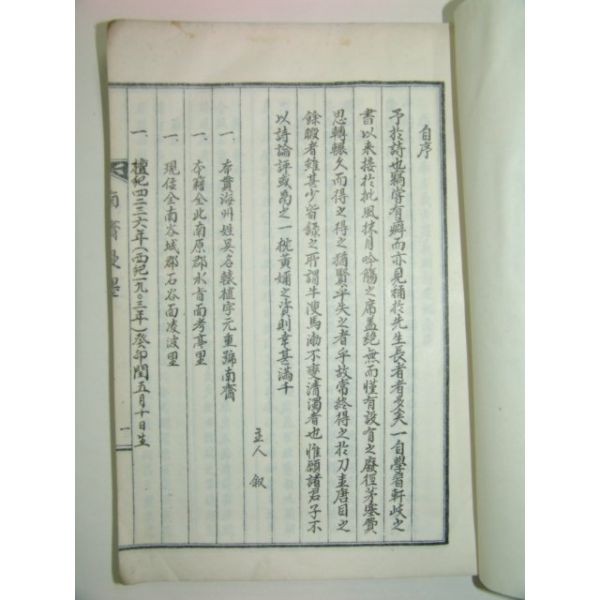 自序
予於詩也竊嘗有癖而亦見補於先生長者者多矣一自學習軒岐之
書以來接於批風抹月吟觴之席盖絶無而僅有設有之廢徑茅塞費
思轉輾久而得之得之猶賢乎失之者乎故常終得之於刀圭唐目之
餘暇者雖甚少皆錄之所謂牛溲馬渤不變清濁者也惟願諸君子不
以詩論評或爲之一枕黃嬭之資則幸甚滿千
主人 叙
一、本貫海州姓吳名轅植字元重號南齋
一、本籍全北南原郡水旨面考亭里
一、現住全南谷城郡石谷面凌波里
一、檀紀四二三六年(西紀一九〇三年)癸卯閏五月十日生
南齋 一